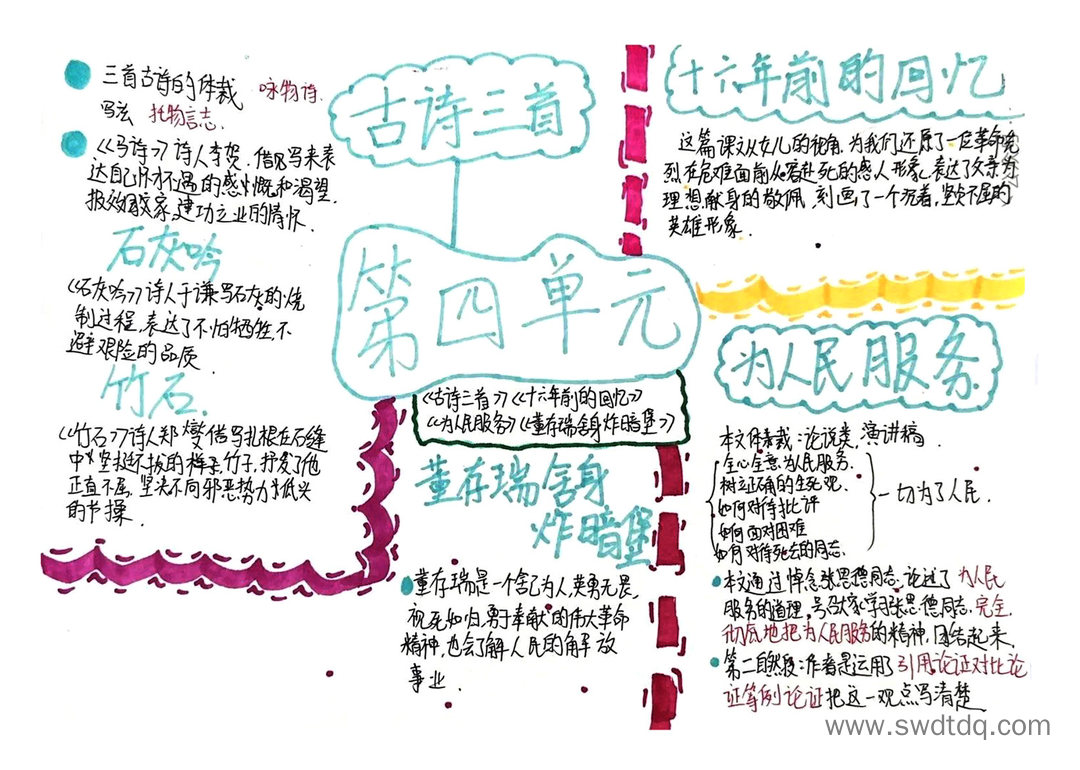 三首古诗的体裁 咏物诗.
写法 托物言志.
《马诗》诗人李贺.借马写来表
达自己怀才不遇的感慨和渴望
报效国家,建功立业的情怀.
石灰吟
《石灰吟》诗人于谦写石灰的烧
制过程,表达了不怕牺牲,不
避艰险的品质.
竹石.
《竹石》诗人郑燮借写扎根在石缝
中坚挺不拔的样子竹子,抒发了他
正直不屈,坚决不向邪恶势力低头
的节操.
古诗三首
第四单元
《古诗三首》《十六年前的回忆》
《为人民服务》《董存瑞舍身炸暗堡》
董存瑞舍身
炸暗堡
董存瑞是一个舍己为人,英勇无畏,
视死如归,勇于奉献的伟大革命
精神,也会了解人民的解放
事业.
十六年前的回忆
这篇课文从女儿的视角,为我们还原了一位革命先
烈在危难面前从容赴死的感人形象,表达了父亲为
理想献身的敬佩,刻画了一个沉着,坚贞不屈的
英雄形象.
为人民服务
本文体裁:论说类,演讲稿.
全心全意为人民服务.
树立正确的生死观.
如何对待批评
如何面对困难
如何对待死去的同志.
一切为了人民.
本文通过悼念张思德同志,论述了为人民
服务的道理,号召大家学习张思德同志,完全,
彻底地把为人民服务的精神,团结起来.
第二自然段:作者是运用了引用论证对比论
证等例论证把这一观点写清楚
www.swdtdq.com